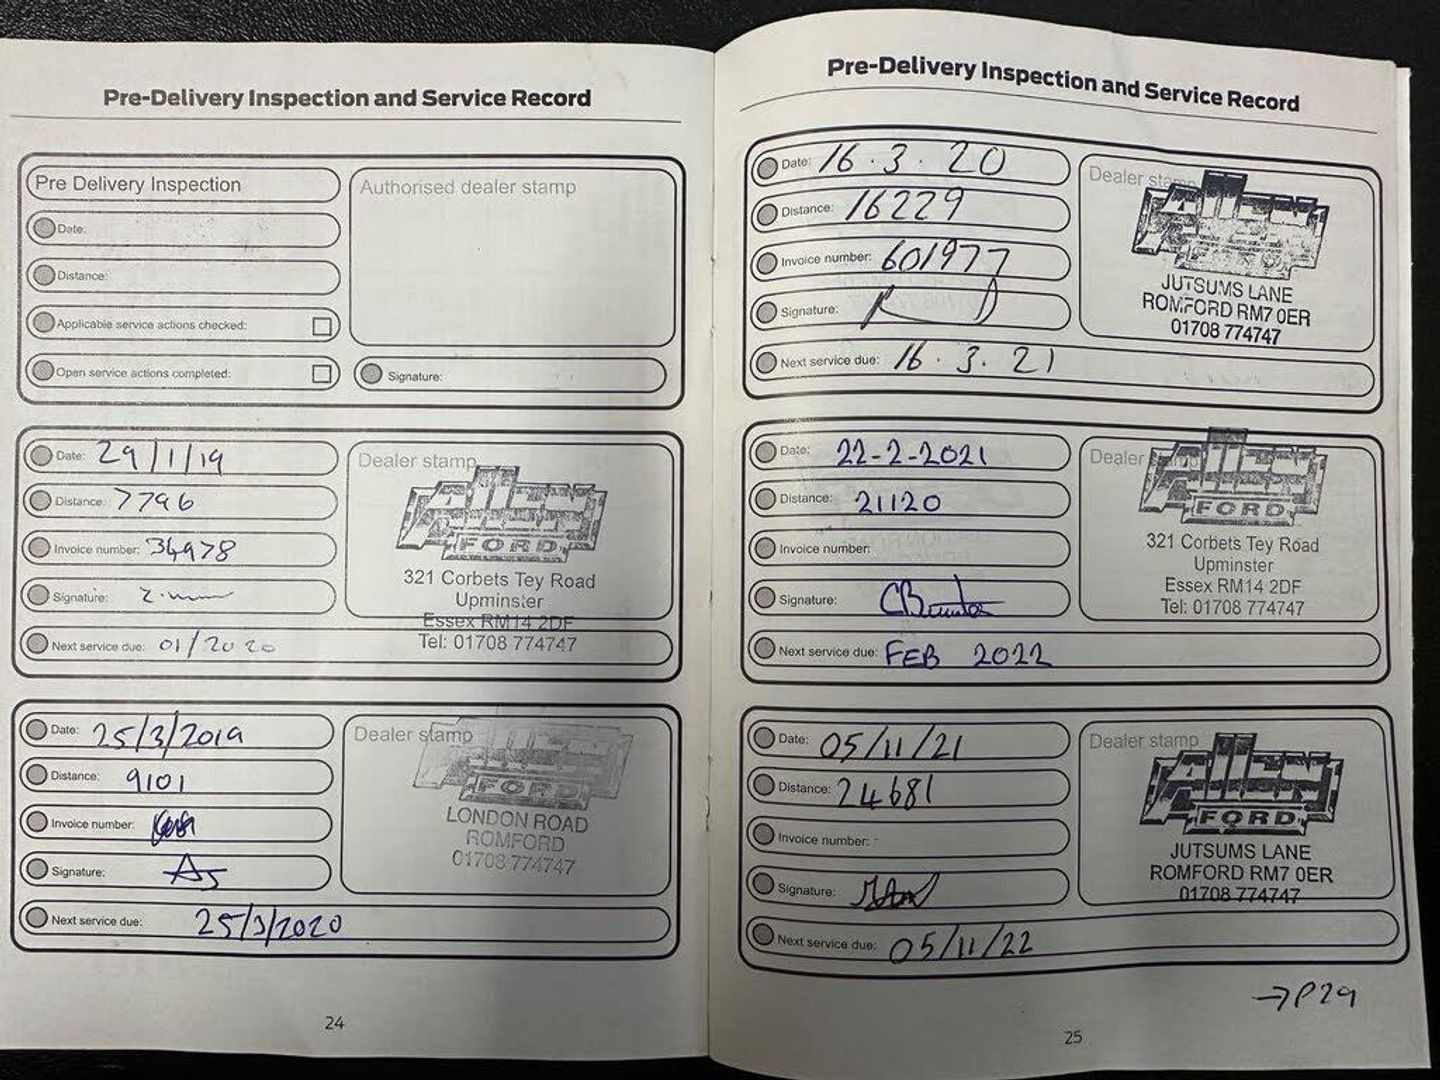 Pre-Delivery Inspection and Service Record
Pre Delivery Inspection
Date:
Distance:
Applicable service actions checked:
Open service actions completed:
Authorised dealer stamp
Signature:
Date: 29/1/19
Distance: 7796
Invoice number: 34978
Signature:
Next service due: 01/2020
Dealer stamp
ALLEN
FORD
321 Corbets Tey Road
Upminster
Essex RM14 2DF
Tel: 01708 774747
Date: 25/3/2019
Distance: 9101
Invoice number:
Signature:
Next service due: 25/3/2020
Dealer stamp
ALLEN
FORD
LONDON ROAD
ROMFORD
01708 774747
24
Pre-Delivery Inspection and Service Record
Date: 16.3.20
Distance: 16229
Invoice number: 601977
Signature:
Next service due: 16.3.21
Dealer stamp
ALLEN
JUTSUMS LANE
ROMFORD RM7 0ER
01708 774747
Date: 22-2-2021
Distance: 21120
Invoice number:
Signature:
Next service due: FEB 2022
Dealer
ALLEN
FORD
321 Corbets Tey Road
Upminster
Essex RM14 2DF
Tel: 01708 774747
Date: 05/11/21
Distance: 24681
Invoice number:
Signature:
Next service due: 05/11/22
Dealer stamp
ALLEN
FORD
JUTSUMS LANE
ROMFORD RM7 0ER
01708 774747
→P29
25